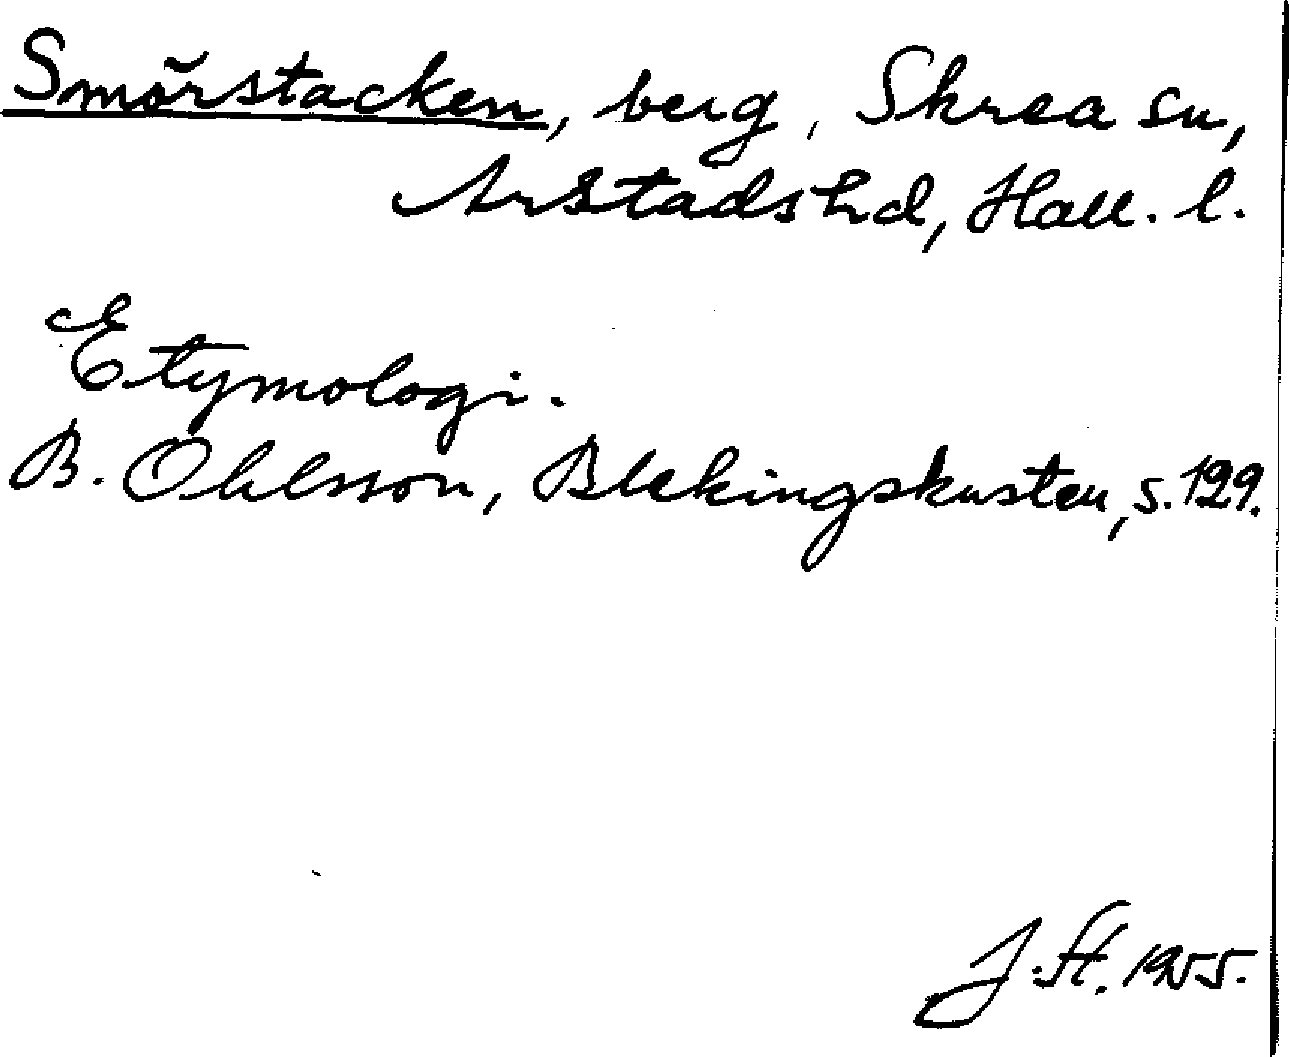 Smörstacken, berg, Skrea sn,
Årstads hd, Hall. l.
Etymologi.
B. Ohlsson, Blekingskusten, s. 129.
J. St. 1955.